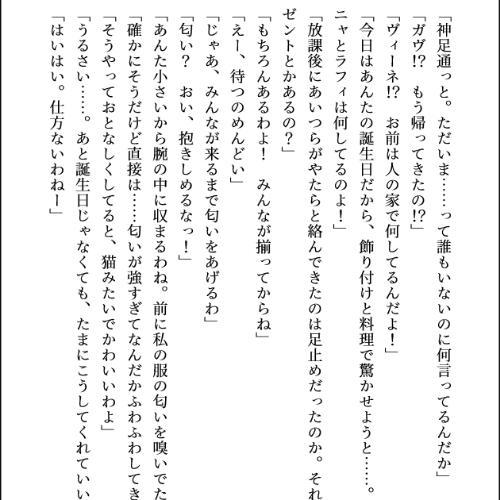 「神足通っと。ただいま……って誰もいないのに何言ってるんだか」
「ガヴ!?　もう帰ってきたの!?」
「ヴィーネ!?　お前は人の家で何してるんだよ！」
「今日はあんたの誕生日だから、飾り付けと料理で驚かせようと……。
ニャとラフィは何してるのよ！」
「放課後にあいつらがやたらと絡んできたのは足止めだったのか。それ
ゼントとかあるの？」
「もちろんあるわよ！　みんなが揃ってからね」
「えー、待つのめんどい」
「じゃあ、みんなが来るまで匂いをあげるわ」
「匂い？　おい、抱きしめるなっ！」
「あんた小さいから腕の中に収まるわね。前に私の服の匂いを嗅いでた
「確かにそうだけど直接は……匂いが強すぎてなんだかふわふわしてき
「そうやっておとなしくしてると、猫みたいでかわいいわよ」
「うるさい……。あと誕生日じゃなくても、たまにこうしてくれていい
「はいはい。仕方ないわねー」